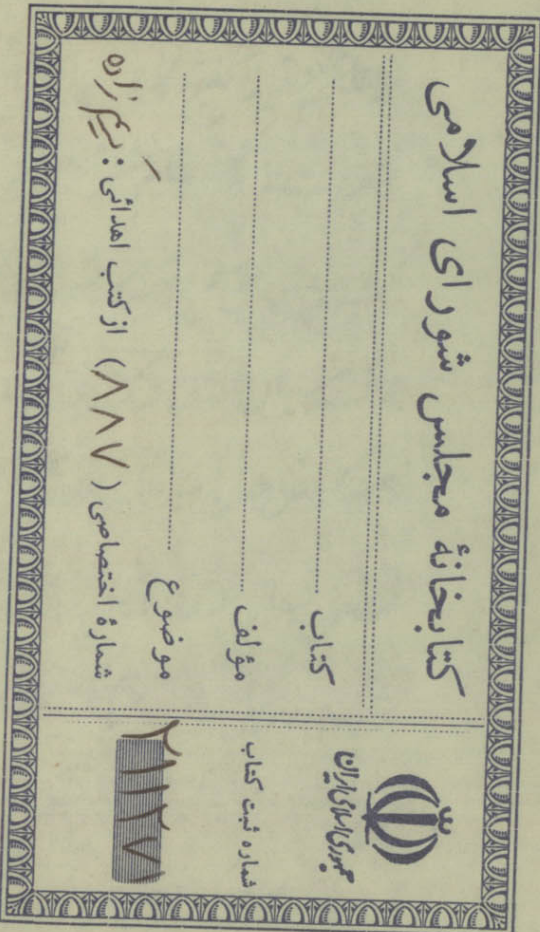 کتابخانهٔ مجلس شورای اسلامی
کتاب
مؤلف
موضوع
شمارهٔ اختصاصی (۸۸۷) از کتب اهدائی :
جمهوری اسلامی ایران
شماره ثبت کتاب